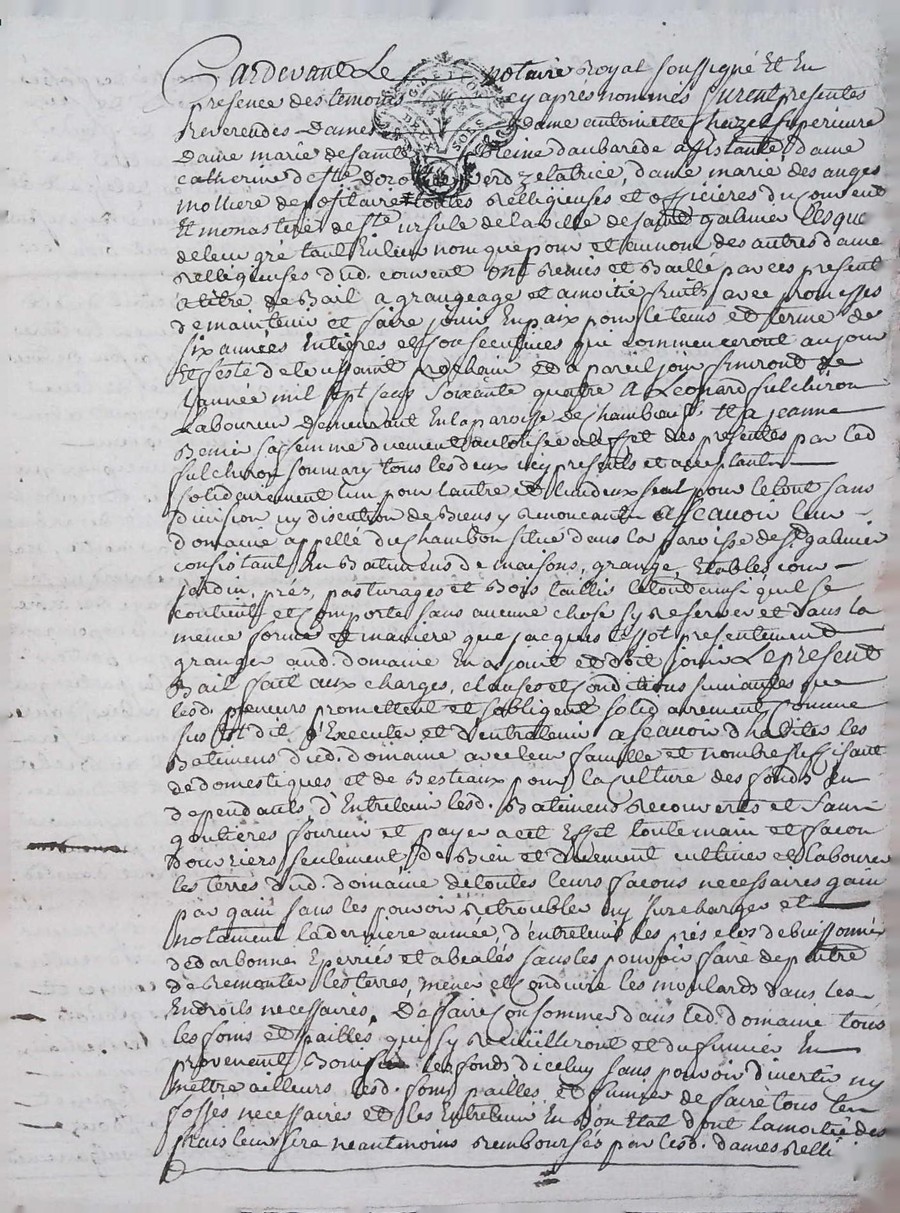 Pardevant Le notaire Royal soussigné Et En
presence des temoins cy apres nommés furent presentes
Reverendes Dames dame antoinette Superieure
GEN ET LION
DEUX SOLS
Dame marie de sainte Reine daubarede assistante, dame
catherine de Ste zelatrice, dame marie des anges
molliere depositaire toutes Relligieuses et officieres du couvent
Et monastere de Ste ursule de la ville de saint galmier Lesque
de leur gré tant En leur nom que pour et au nom des autres dame
Relligieuses dud. couvent ont Remis et Baillé par ces present
a titre de Bail a grangeage et a moitié fruits avec promesses
de maintenir et faire jouir En paix pour le tems et terme de
six années Entieres et consecutives qui commenceront au jour
Et feste de toussaint prochain et a pareil jour finiront de
Lannée mil sept cens soixante quatre A Leonard fulchiron
Laboureur Demeurant En la paroisse de Chambeuf Et a jeanne
sa femme duement authorisée a leffet des presentes par led
fulchiron son mary tous les deux icy presents et acceptants
solidairement lun pour lautre et lun deux seul pour le tout sans
division ny discution de Biens y renoncants Ascavoir leur
domaine appellé du Chambon situé dans la paroisse de St galmier
consistant En Batimens de maisons, grange, Etables cour
jardin, prés, pasturages et Bois taillis le tout ainsi quil se
contient et comporte sans aucune chose sy reserver et dans la
meme forme et maniere que jacques presentement
granger aud. domaine En a jouit et doit jouir Le present
Bail fait aux charges, clauses et conditions suivantes que
lesd. preneurs promettent et sobligent solidairement comme
sus est dit d'Executer et dentretenir ascavoir dhabiter les
Batimens dud. domaine avec leur famille et nombre suffisant
de domestiques et de Bestiaux pour la culture des fonds En
dependants d'Entretenir lesd. Batimens recouverts et sans
goutieres fournir et payer a cet Effet toute main et facon
douvriers seulement, de Bien et duement cultiver et labourer
les terres dud. domaine de toutes leurs facons necessaires gain
par gain sans les pouvoir retroubler ny surcharger et
notament la derniere année, d'entretenir les prés et
Eperriés et abealés sans les pouvoir faire depaitre
de Remonter les terres, mener et conduire les moulards dans les
Endroits necessaires, De faire consommer dans led. domaine tous
les foins et pailles qui sy recuilliront et du fumier En
provenant Bonifier les fonds dicelluy sans pouvoir divertir ny
mettre ailleurs lesd. foins pailles et fumier de faire tous les
fosses necessaires et les Entretenir En Bon Etat dont la moitié des
frais leur sera neantmoins remboursés par lesd. dames relli